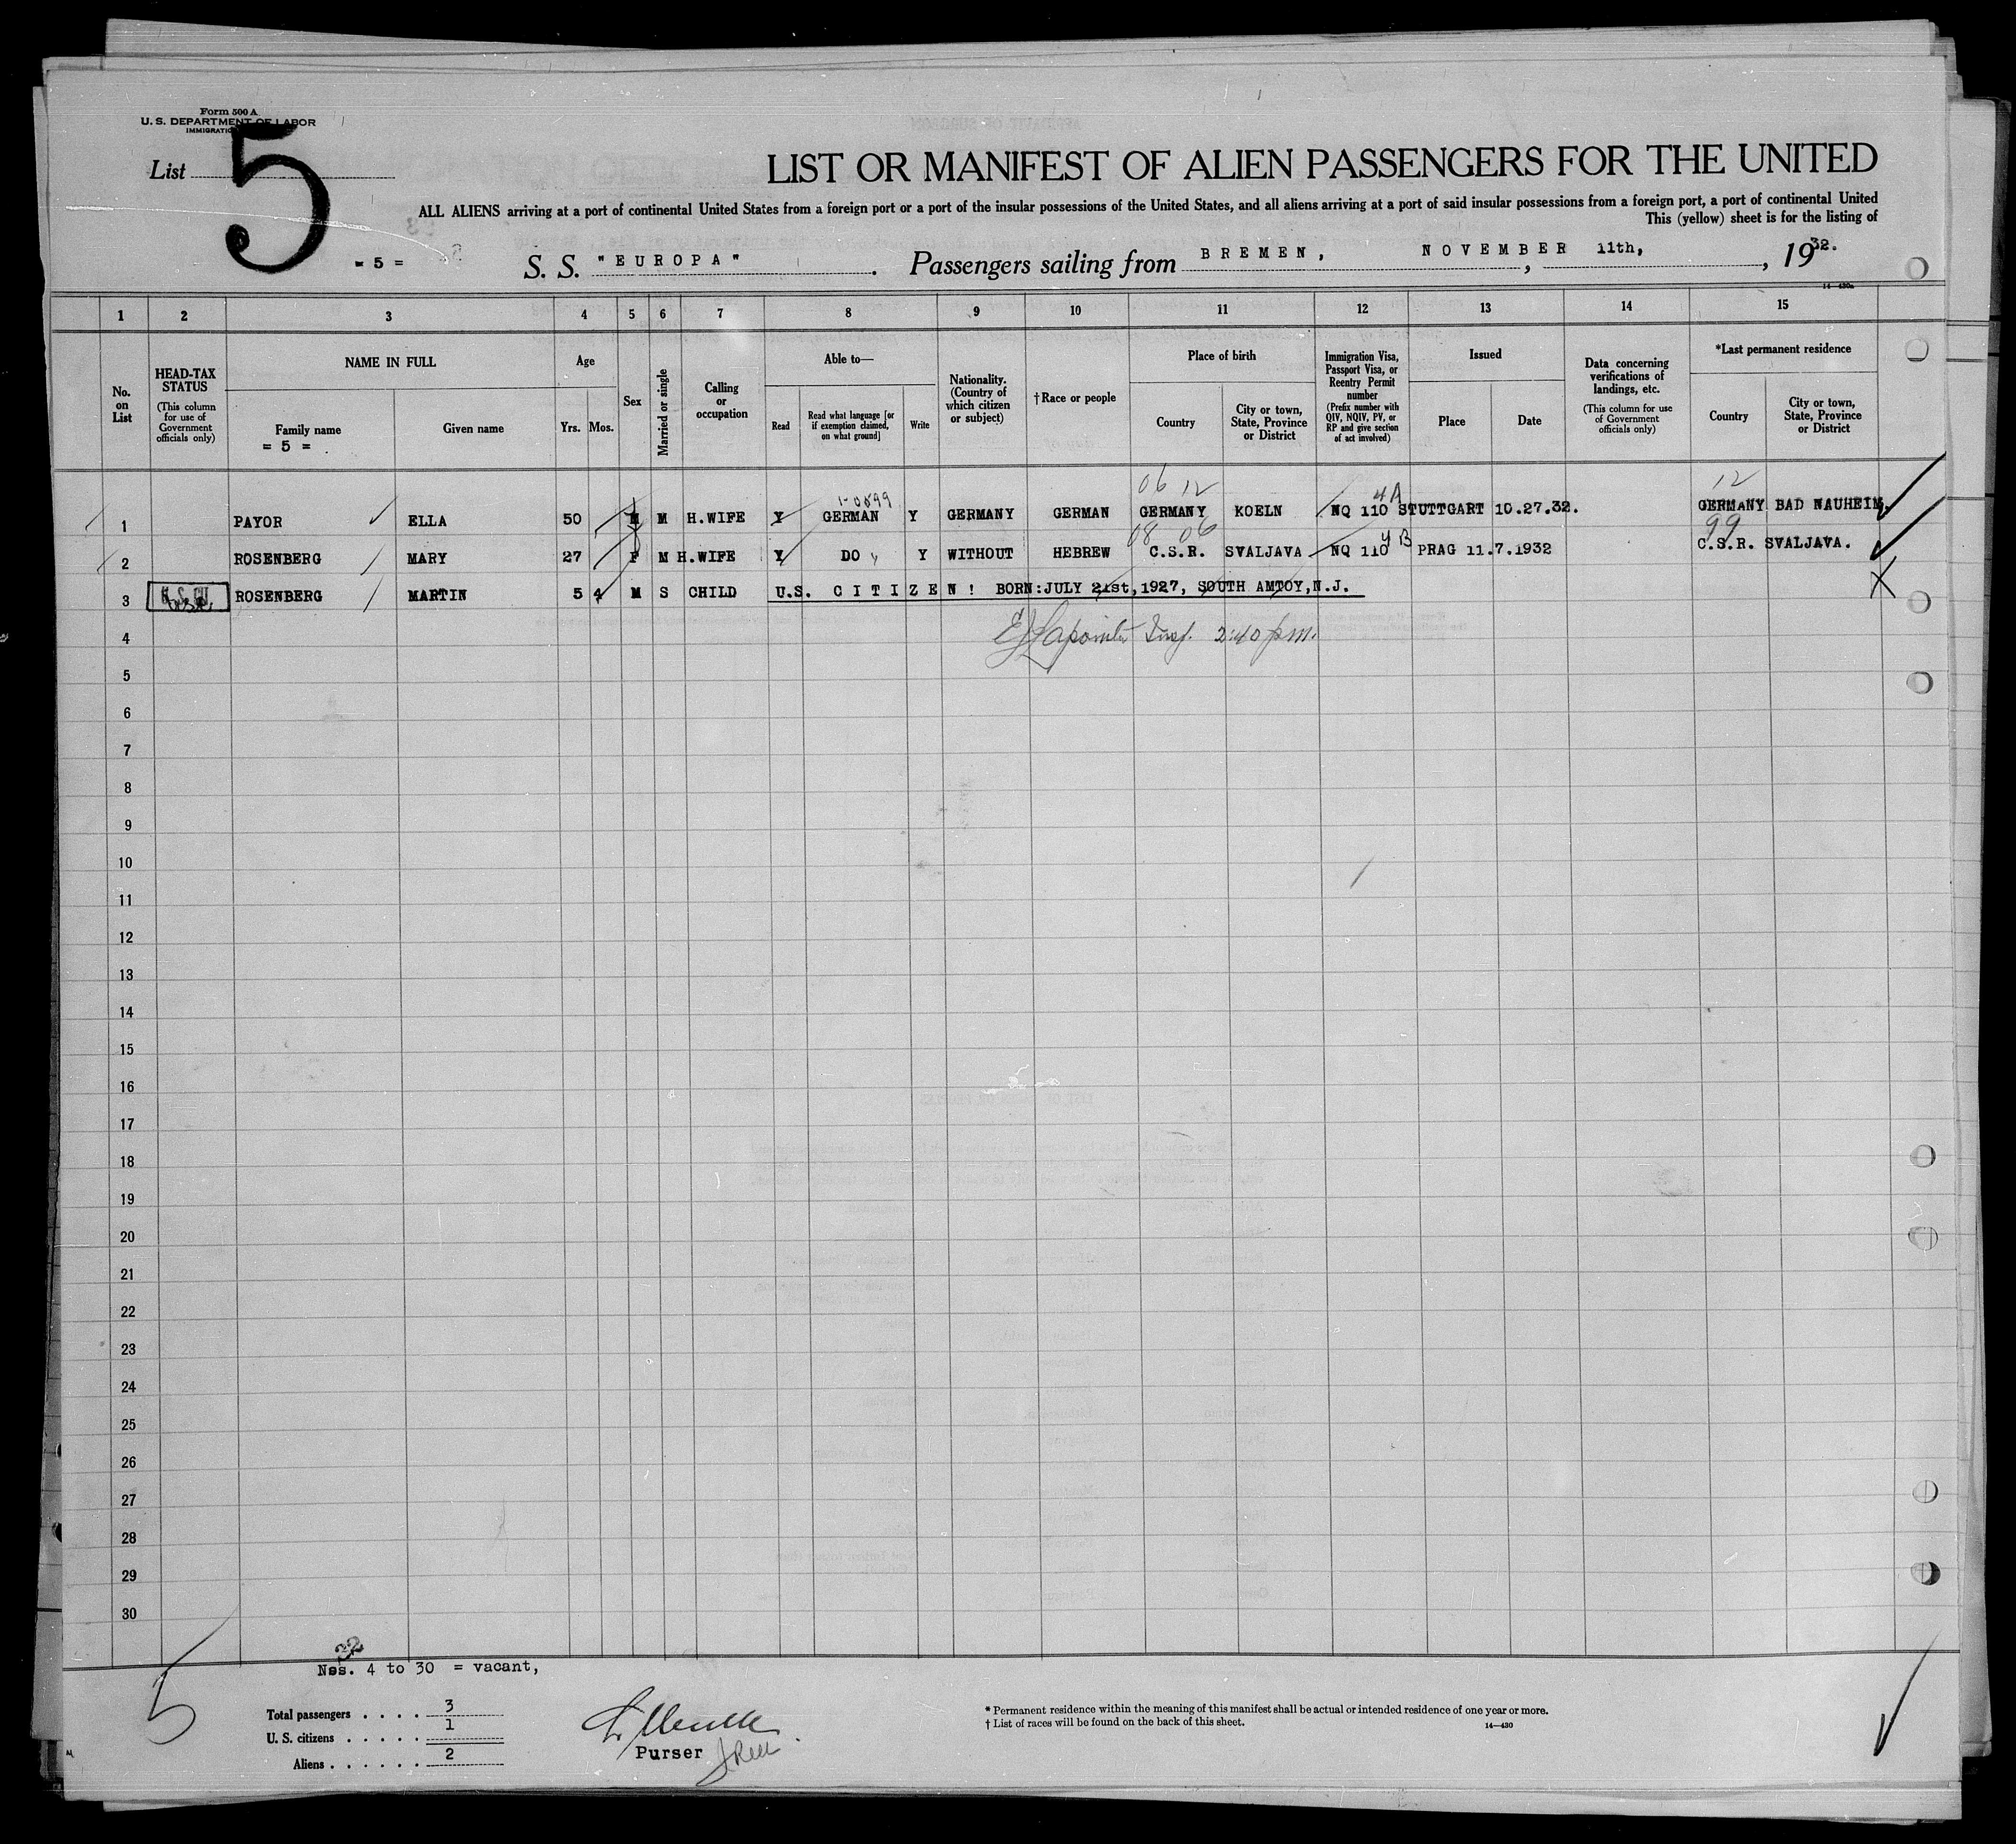 Form 500 A
U. S. DEPARTMENT OF LABOR
List 5
LIST OR MANIFEST OF ALIEN PASSENGERS FOR THE UNITED
ALL ALIENS arriving at a port of continental United States from a foreign port or a port of the insular possessions of the United States, and all aliens arriving at a port of said insular possessions from a foreign port, a port of continental United
This (yellow) sheet is for the listing of
= 5 = S. S. "EUROPA". Passengers sailing from BREMEN, NOVEMBER 11th, 1932.
14—430a
1 2 3 4 5 6 7 8 9 10 11 12 13 14 15
No. on List
HEAD-TAX STATUS (This column for use of Government officials only)
NAME IN FULL
Family name
= 5 =
Given name
Age
Yrs. Mos.
Sex
Married or single
Calling or occupation
Able to—
Read
Read what language [or if exemption claimed, on what ground]
Write
Nationality. (Country of which citizen or subject)
†Race or people
Place of birth
Country
City or town, State, Province or District
Immigration Visa, Passport Visa, or Reentry Permit number (Prefix number with QIV, NQIV, PV, or RP and give section of act involved)
Issued
Place
Date
Data concerning verifications of landings, etc. (This column for use of Government officials only)
*Last permanent residence
Country
City or town, State, Province or District
1-0899 06 12 4A 12
1 PAYOR ELLA 50 M M H.WIFE Y GERMAN Y GERMANY GERMAN GERMANY KOELN NQ 110 STUTTGART 10.27.32. GERMANY BAD NAUHEIM.
08 06 4B 99
2 ROSENBERG MARY 27 F M H.WIFE Y DO Y WITHOUT HEBREW C.S.R. SVALJAVA NQ 110 PRAG 11.7.1932 C.S.R. SVALJAVA.
3 ROSENBERG MARTIN 5 4 M S CHILD U.S. CITIZEN! BORN:JULY 21st,1927, SOUTH AMTOY,N.J. X
4 Lapointe Insp. 2:40 pm.
5
6
7
8
9
10
11
12
13
14
15
16
17
18
19
20
21
22
23
24
25
26
27
28
29
30
22
Nos. 4 to 30 = vacant,
5
Total passengers . . . . 3
U. S. citizens . . . . . 1
Aliens . . . . . . 2
Purser
* Permanent residence within the meaning of this manifest shall be actual or intended residence of one year or more.
† List of races will be found on the back of this sheet.
14—430